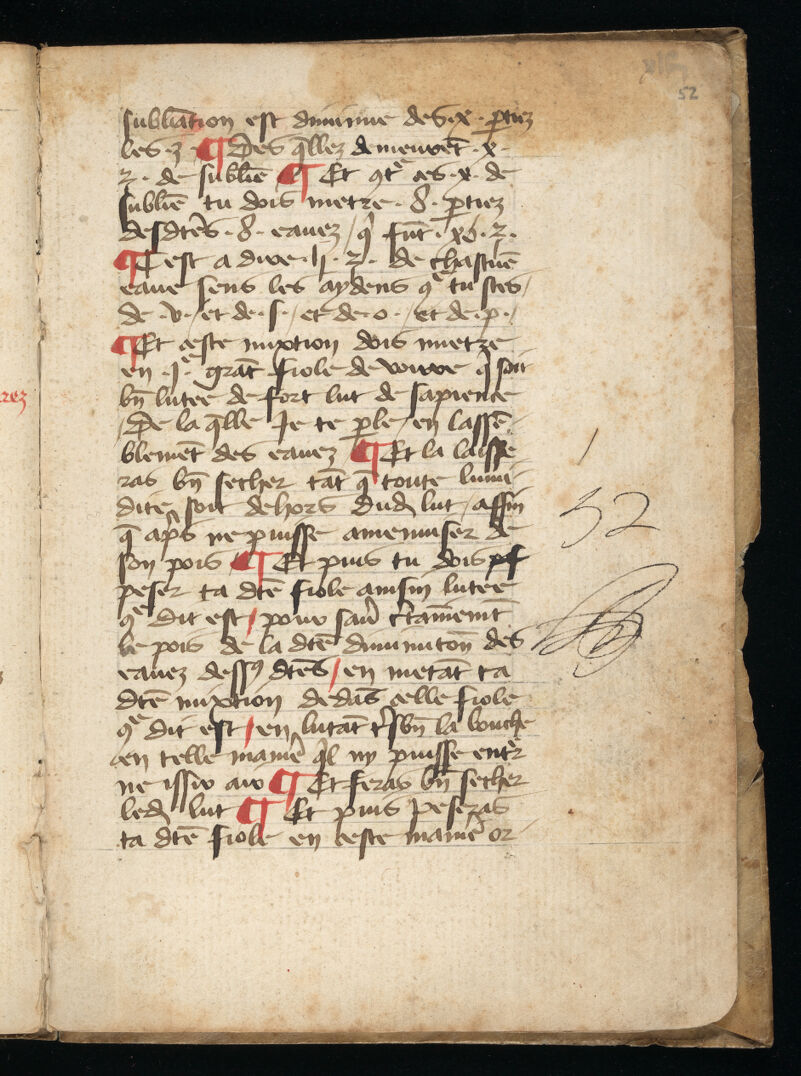 52
sublia͞tion est diminue des .x. ꝑtiez
les .3. ¶ Des q̅llez demeurēt .x.
z. de subliē ¶ Et ꝯtͤ ces .x. de
subliē tu dois metre .8. ꝑtiez
desdtēs .8. eauez / qͥ sūt .xv. z.
¶ C est a dire .ij. z. de chascūē
eaue sens les aydēns qͤ tu sces /
de .v. / et de .s. / et de .o. / et de .p. /
¶ Et ceste mixtion dois metre
en .j.ͤ grāt fiole de voirre qͥ soit
bn̄ lutee de fort lut de sapience
/ De la q̅lle Je te ꝑle / en lassē-
blemēt des eauez ¶ Et la laisse-
ras bn̄ secher tāt q̅ toute lumi-
dite soit dehors dud lut / affin
q̅ apͥs ne puisse amenuiser de
son pois ¶ Et puis tu dois
peser ta dtē fiole ainsin lutee
ꝯͤ dit est / pour sauͬ c̄tainemēt
le pois de la dtē diminuton̄ des
eauez dessꝰ dtēs / en metāt ta
dtē mixtion dedās celle fiole
ꝯͤ dit est / en lutāt tͬsbn̄ la bouche
en telle maniē q̅l ny puisse entͬr
ne issir air ¶ Et feras bn̄ secher
led lut ¶ Et puis peseras
ta dtē fiole en ceste maniē or-
32
rez